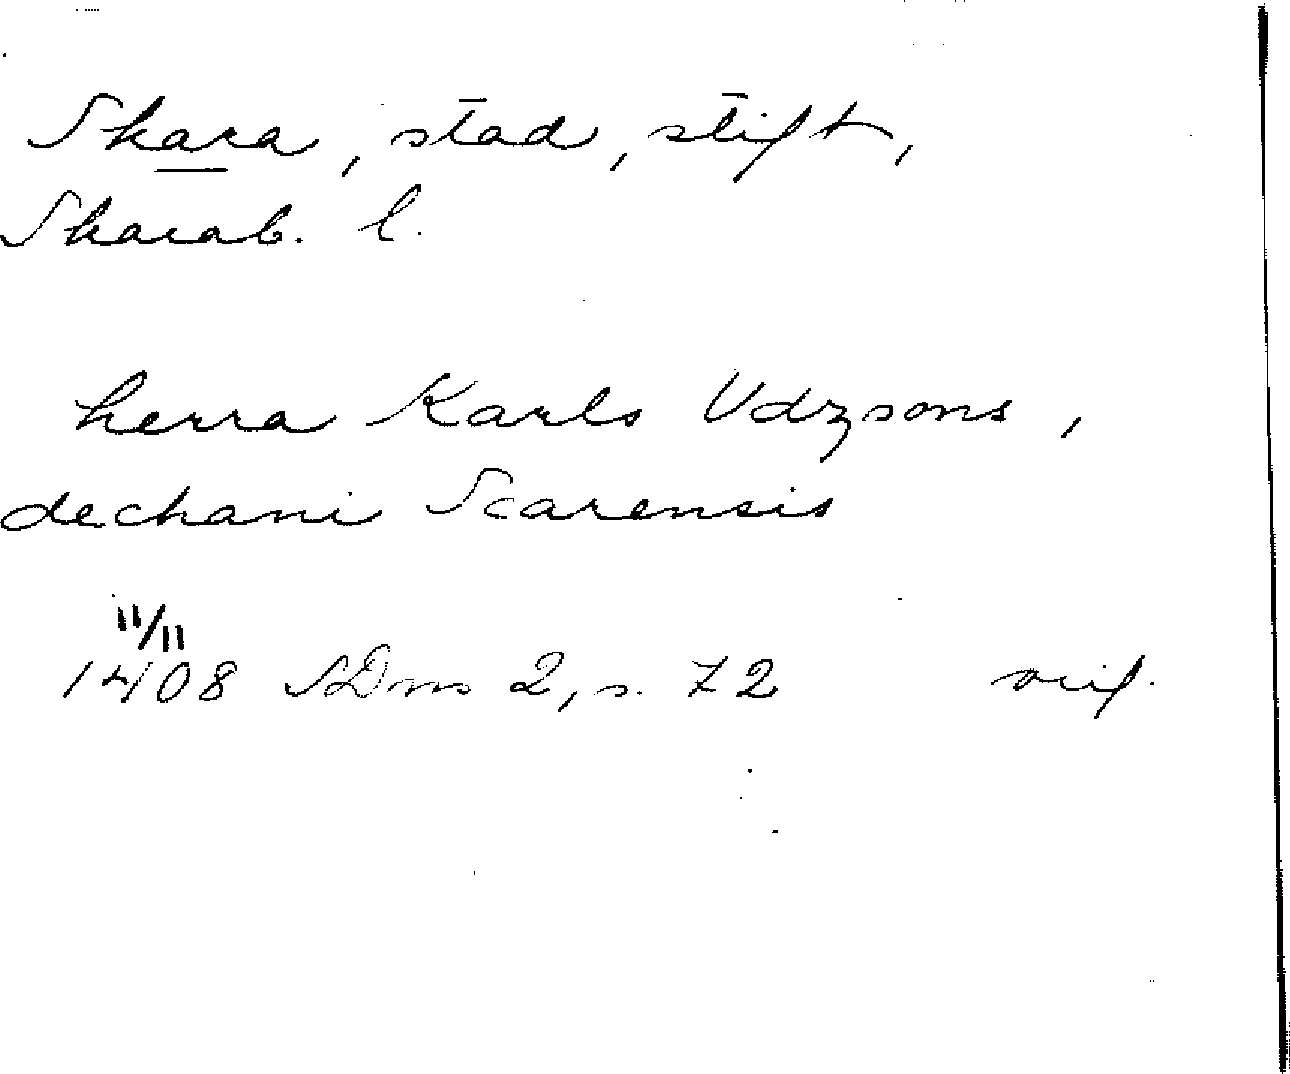 Skara, stad, stift,
Skarab. l.
herra Karls Udzsons,
dechani Scarensis
11/11
1408 SDns 2, s. 72 avif.